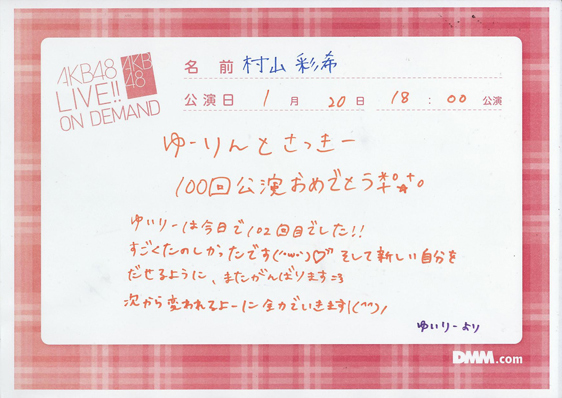 AKB48
LIVE!!
ON DEMAND
AKB
48
名前 村山彩希
公演日 1月20日 18:00公演
ゆーりんとさっきー
100回公演おめでとう
ゆいりーは今日で102回目でした!!
すごくたのしかったです(''ω'')♡ そして新しい自分を
だせるように、またがんばります
次から変われるよーに全力でいきます!(^^)!
ゆいりーより
DMM.com